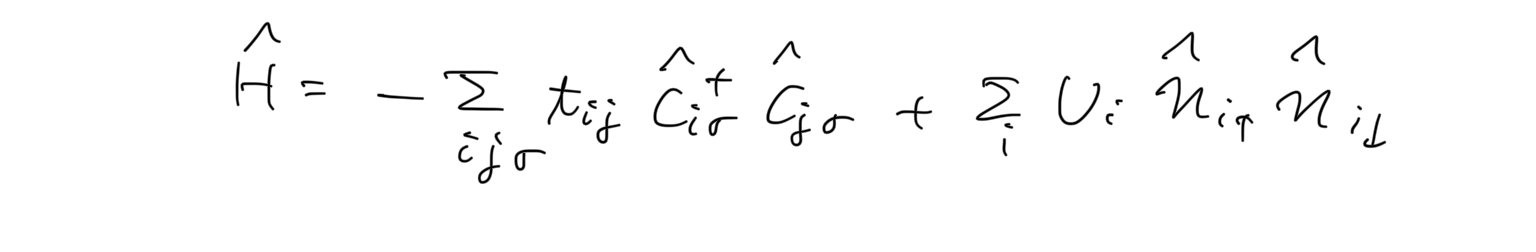 $\hat{H} = - \sum_{ij\sigma} t_{ij} \hat{c}_{i\sigma}^{+} \hat{c}_{j\sigma} + \sum_{i} U_{i} \hat{n}_{i\uparrow} \hat{n}_{i\downarrow}$